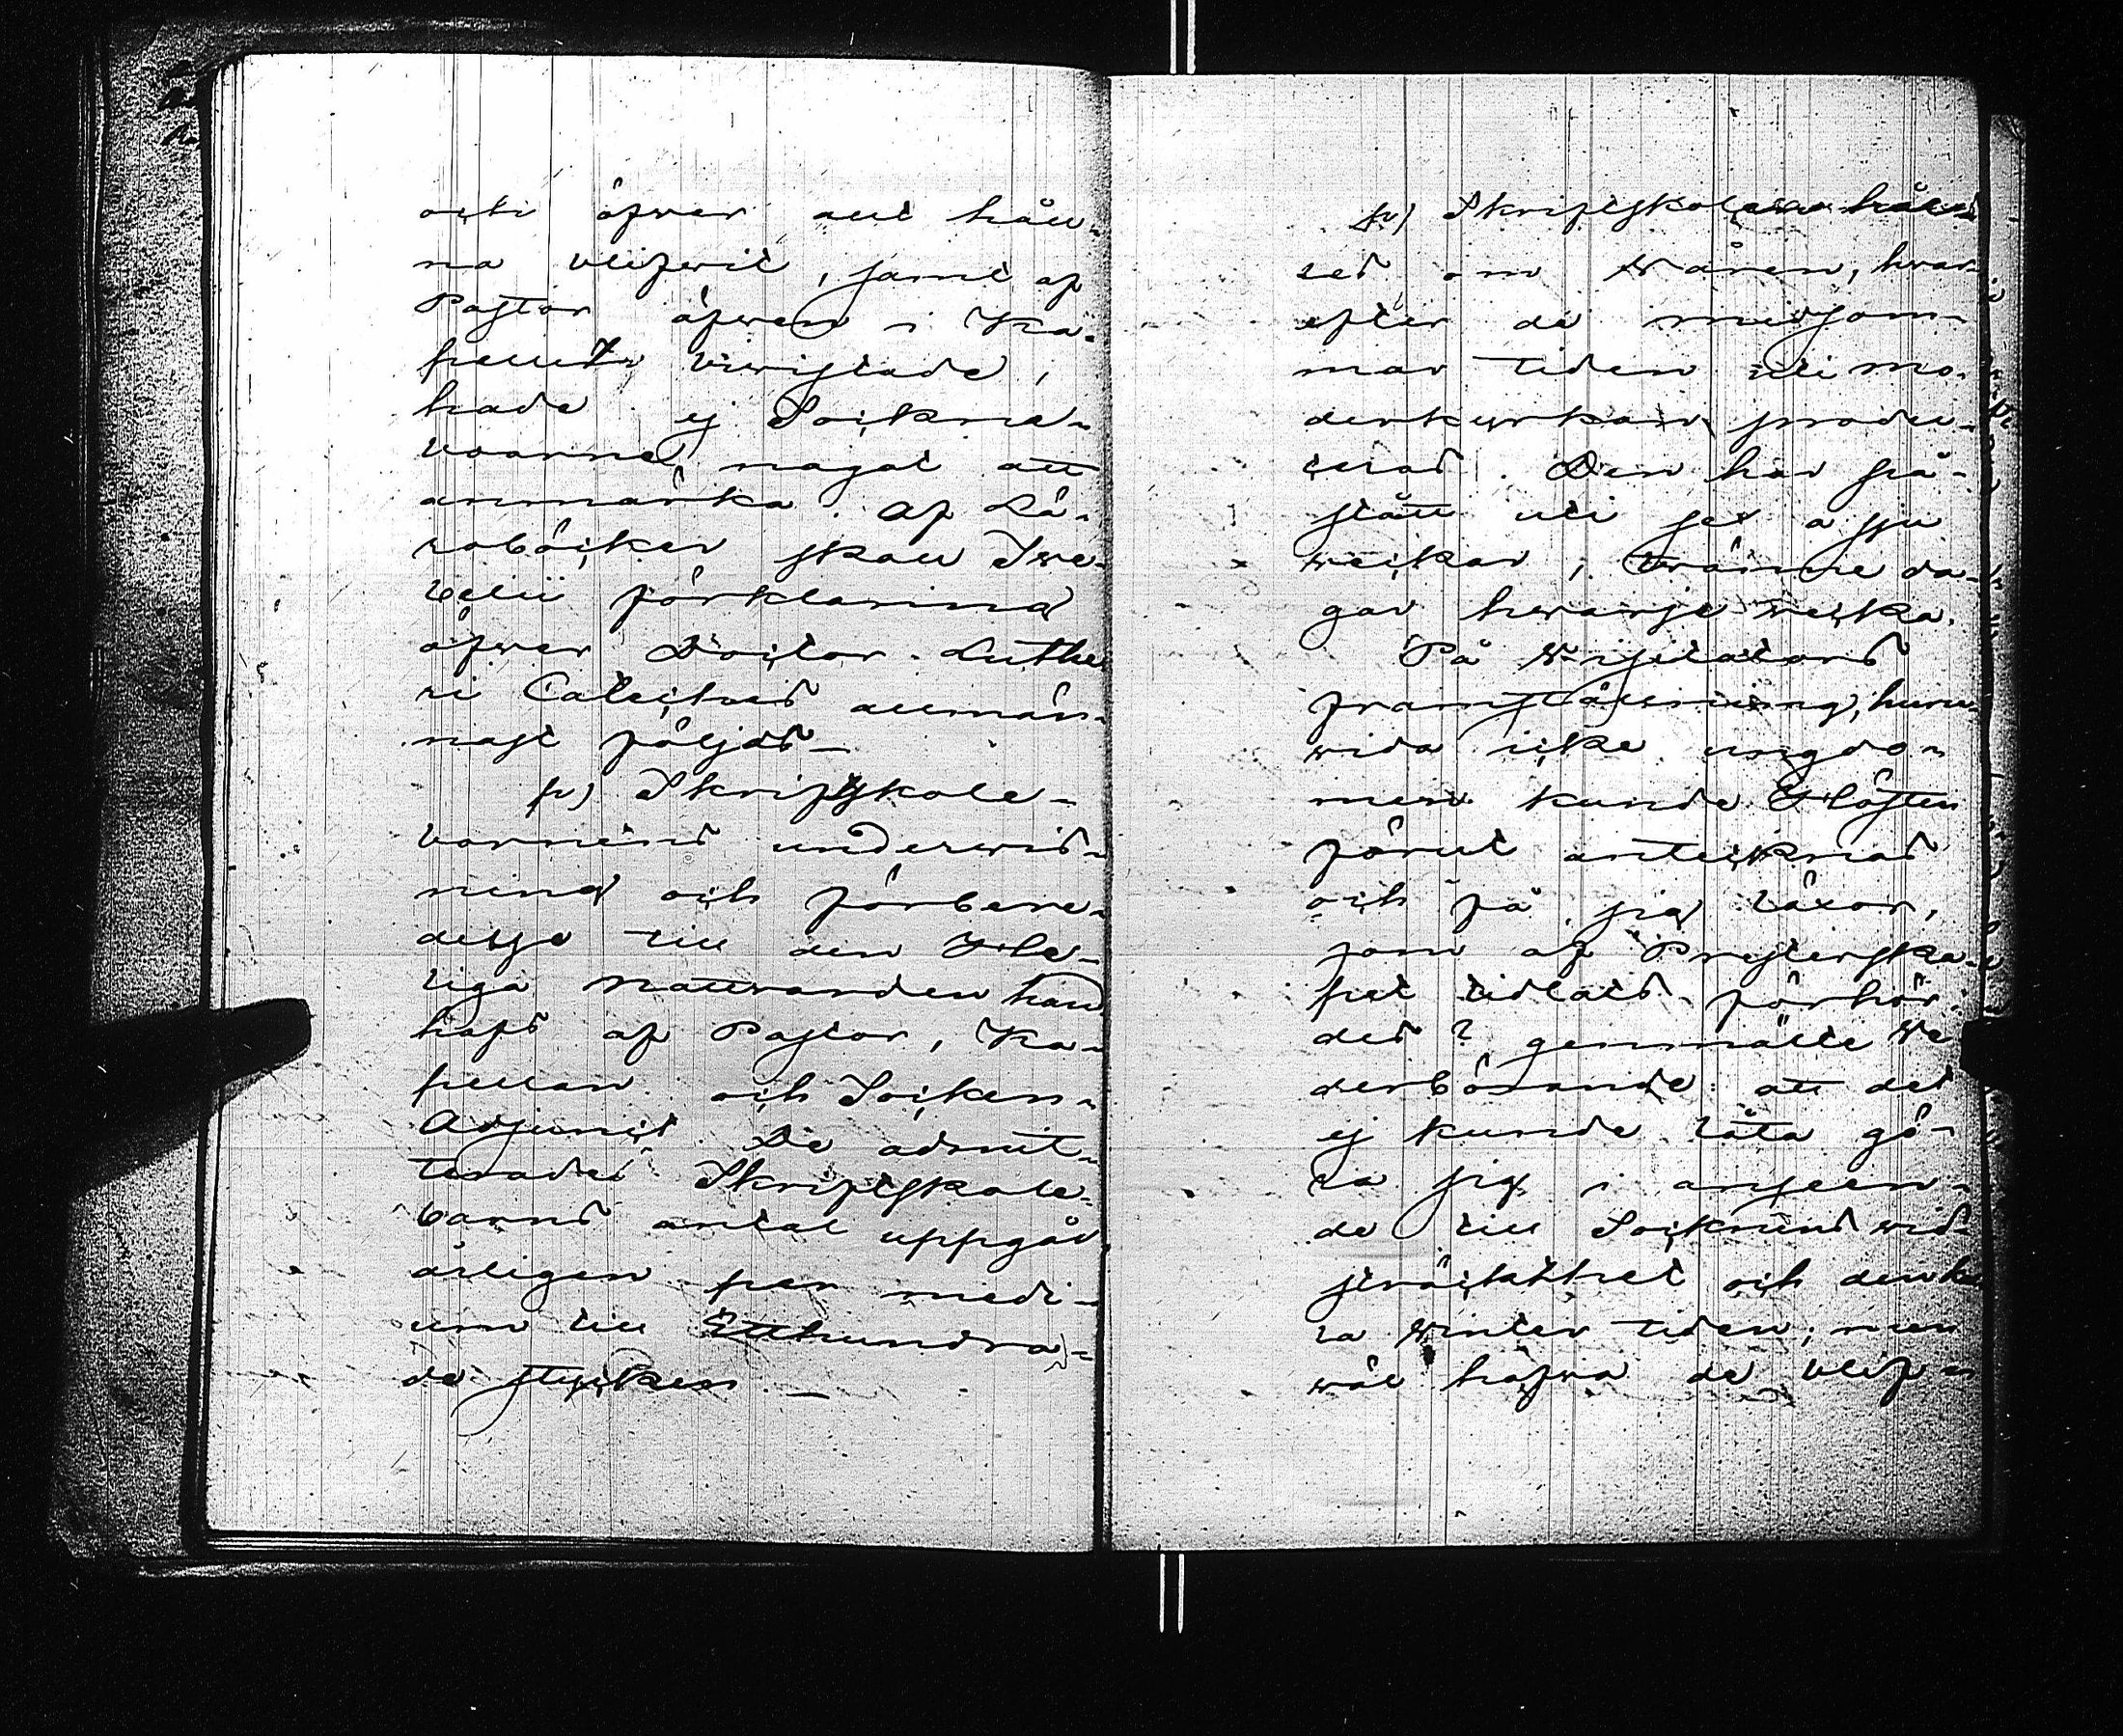 och öfver allt hål-
na blifwit, samt af
Pastor äfwen i Ka-
pellet bewistade,
hade ej Sockne-
boarne, nagat att
anmärka. Af Lä-
roböcker skall Swe-
belii förklaring
öfwer Doctor Luthe
ri Cateches allmän-
nast följas—
p) Skriftskole-
barnens underwis-
ning och förbere-
delse till den He-
liga Nattwarden hand
hafs af Pastor, Ka-
pellan och Socken-
Adjunct. De admit-
terades Skriftskole-
barns antal uppgår
årligen per medi-
um till Etthundra-
de stycken. —
p) Skriftskolan hål-
les om Wåren, hwar-
efter de midsom-
mar tiden uti mo-
derkyrkan produ-
ceras. Den har på-
stått uti sex a sju
weckor, twänne da-
gar hwarje wecka.
På Visitators
framställning, huru-
wida icke ungdo-
men kunde Hösten
förut antecknas
och få sig läxor,
som af Presterska-
pet tidtals förhör-
des? genmälte We
derbörande: att det
ej kunde låta gö-
ra sig i anseen-
de till Socknens wid-
sträckthet och den ka
la winter tiden; men
wäl hafwa de blif-